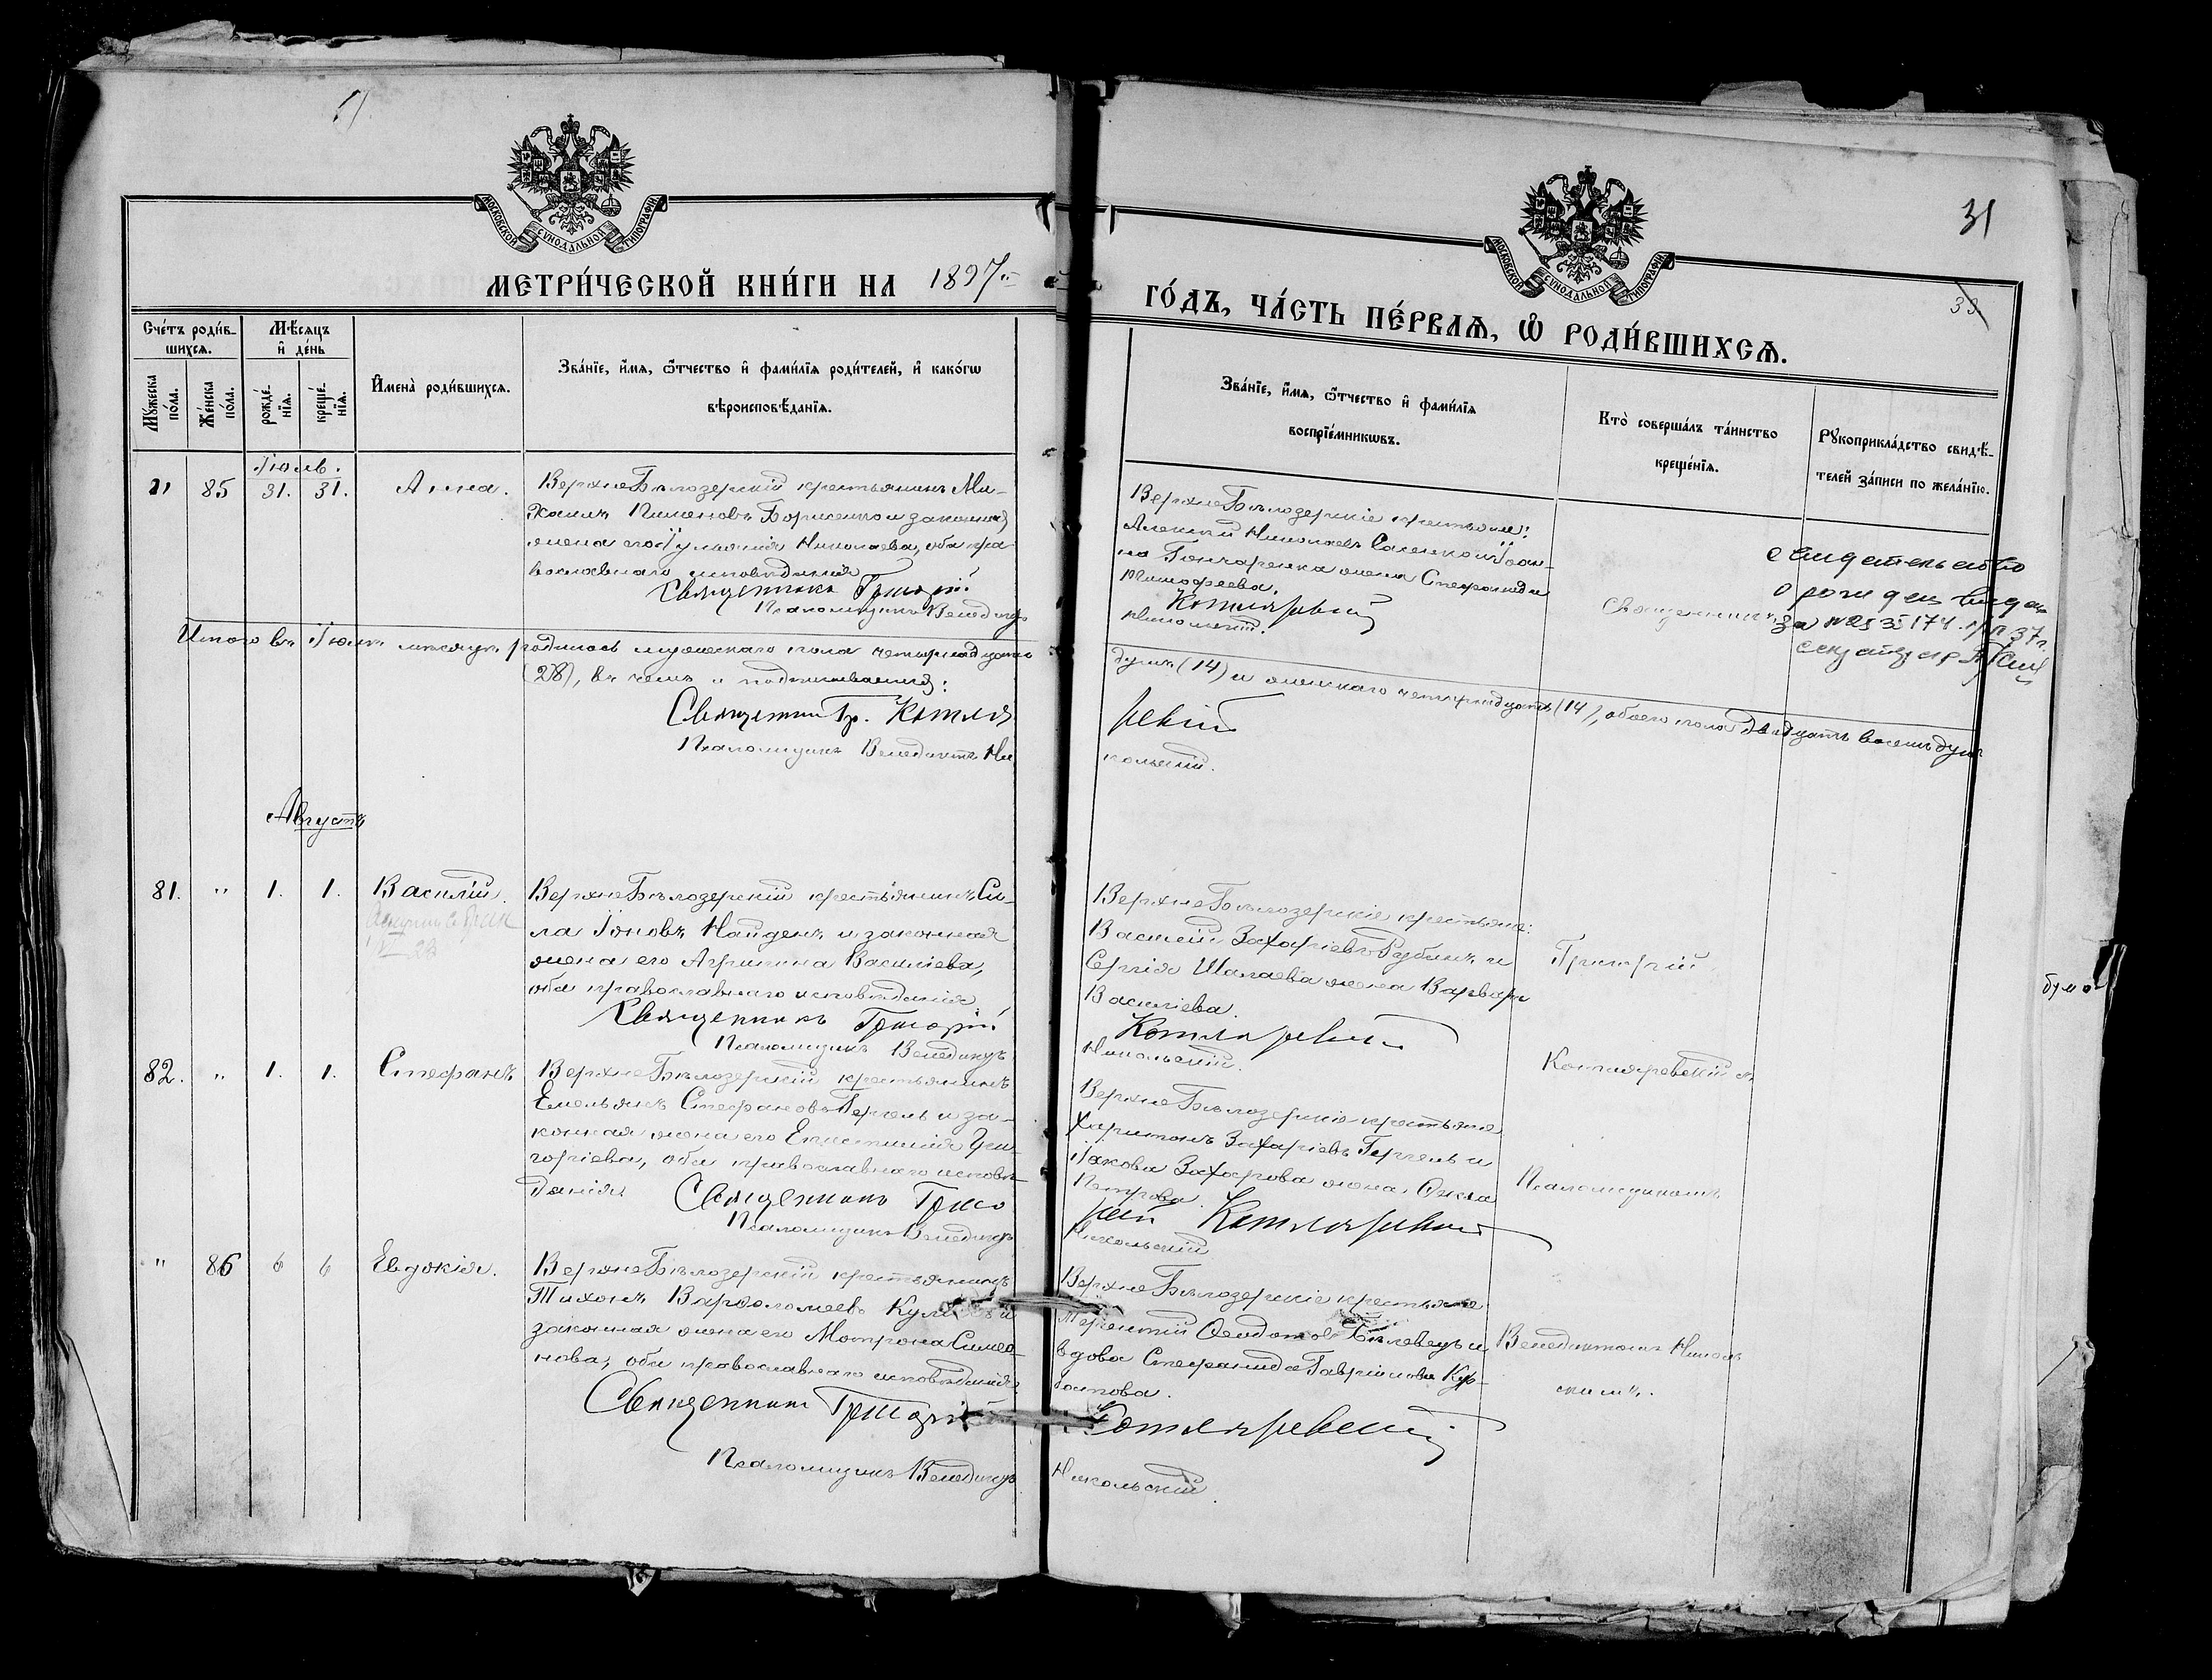 31
МОСКОВСКОЙ СУНОДАЛЬНОЙ ТИПОГРАФIИ
МОСКОВСКОЙ СУНОДАЛЬНОЙ ТИПОГРАФIИ
МЕТРИ́ЧЕСКОЙ КНИ́ГИ НА 1897
ГО́ДЪ, ЧА́СТЬ ПЕ́РВАѦ, Ѡ҆ РОДИ́ВШИХСѦ.
33
Сче́тъ роди́в-
шихсѧ.
Мѣ́сѧцъ
и҆ де́нь
Мꙋ́жеска по́ла.
Же́нска по́ла.
рожде́нїѧ.
креще́нїѧ.
И҆мена̀ роди́вшихсѧ.
Зва́нїе, и҆́мѧ, ѻ҆́тчество и҆ фами́лїѧ роди́телей, и҆ како́гѡ
вѣроисповѣ́данїѧ.
Зва́нїе, и҆́мѧ, ѻ҆́тчество и҆ фами́лїѧ
воспрїе́мникѡвъ.
Кто̀ соверша́лъ та́инство
креще́нїѧ.
Рꙋкоприкла́дство свидѣ́-
телей за́писи по жела́нїю.
Іюль.
" 85 31. 31. Анна.
ВерхнеБѣлозерскій крестьянинъ Ми-
хаилъ Пименовъ Борисенко и законная
жена его Іуліанія Николаева, оба пра-
вославнаго исповѣданія
Священникъ Григорій
Псаломщикъ Венедиктъ
ВерхнеБѣлозерскіе крестьяне:
Алексій Николаевъ и Іоан-
на Гончаренка жена Стефанида
Тимофеева.
Котляревскій
Никольскій.
Священникъ
свидетельство
о рожден выдан
за №
37 г.
Итого въ Іюлѣ мѣсяцѣ родилось мужескаго пола четырнадцать
душъ (14) и женскаго четырнадцать (14), обоего пола двадцать восемь душъ
(28), въ чемъ и подписываемся:
Священникъ Гр. Котля
ревскій
Псаломщикъ Венедиктъ Ни
кольскій.
Августъ
81. " 1. 1. Василій.
ВерхнеБѣлозерскій крестьянинъ Си-
ла Іоновъ Найденъ и законная
жена его Агрипина Василіева,
оба православнаго исповѣданія
Священникъ Григорій
Псаломщикъ Венедиктъ
ВерхнеБѣлозерскіе крестьяне:
Василій Захаріевъ Рубанъ и
Сергія Шапаева жена Варвара
Василіева.
Котляревскій
Никольскій.
Григорій
82. " 1. 1. Стефанъ
ВерхнеБѣлозерскій крестьянинъ
Емельянъ Стефановъ Гергель и за-
конная жена его Екатерина Гри-
горіева, оба православнаго исповѣ-
данія
Священникъ Григо
Псаломщикъ Венедиктъ
ВерхнеБѣлозерскіе крестьяне
Харитонъ Захаріевъ Гергель и
Іакова Захарова жена Фекла
Петрова
рій Котляревскій
Никольскій
Котляревскій съ
Псаломщикомъ
" 86 6 6 Евдокія.
ВерхнеБѣлозерскій крестьянинъ
Тихонъ Варфоломеевъ и
законная жена его Матрона Симео-
нова, оба православнаго исповѣданія
Священникъ Григорій
Псаломщикъ Венедиктъ
ВерхнеБѣлозерскіе крестьяне
Терентій Феодотовъ Бѣловецъ и
вдова Стефанида Гавріилова Кур-
Котляревскій
Никольскій.
Венедиктомъ Николь
скимъ.